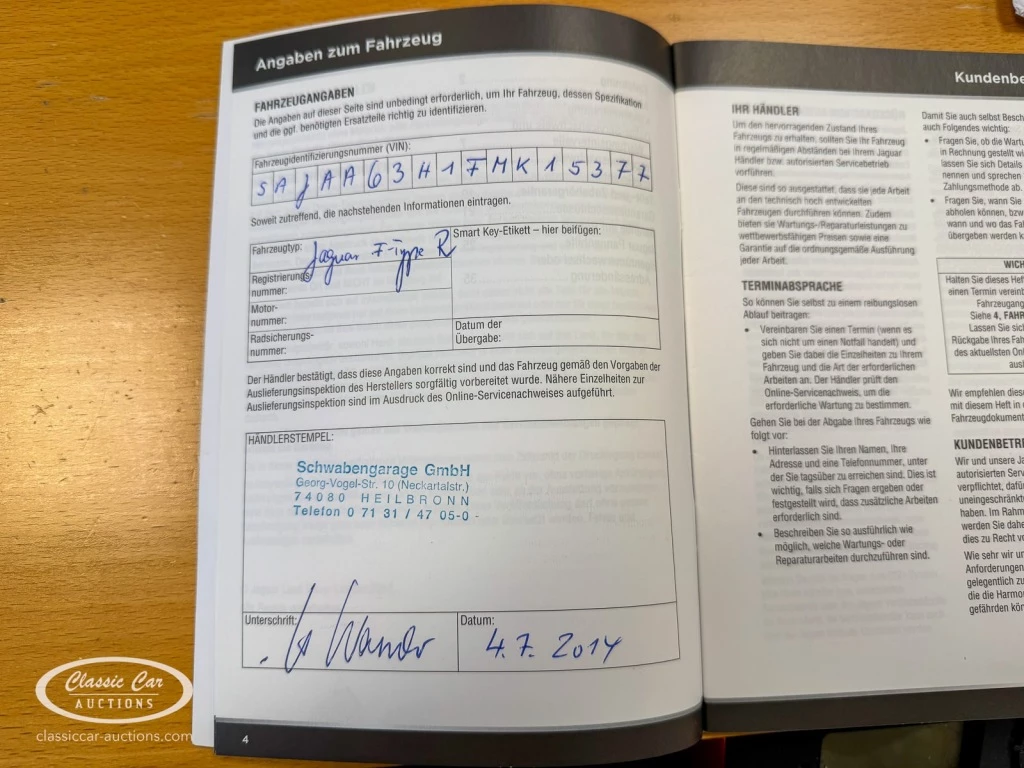 Angaben zum Fahrzeug
FAHRZEUGANGABEN
Die Angaben auf dieser Seite sind unbedingt erforderlich, um Ihr Fahrzeug, dessen Spezifikation
und die ggf. benötigten Ersatzteile richtig zu identifizieren.
Fahrzeugidentifizierungsnummer (VIN):
SAJAA63H17MK15377
Soweit zutreffend, die nachstehenden Informationen eintragen.
Fahrzeugtyp: Jaguar F-Type R
Smart Key-Etikett – hier beifügen:
Registrierungs-
nummer:
Motor-
nummer:
Radsicherungs-
nummer:
Datum der
Übergabe:
Der Händler bestätigt, dass diese Angaben korrekt sind und das Fahrzeug gemäß den Vorgaben der
Auslieferungsinspektion des Herstellers sorgfältig vorbereitet wurde. Nähere Einzelheiten zur
Auslieferungsinspektion sind im Ausdruck des Online-Servicenachweises aufgeführt.
HÄNDLERSTEMPEL:
Schwabengarage GmbH
Georg-Vogel-Str. 10 (Neckartalstr.)
74080 HEILBRONN
Telefon 0 71 31 / 47 05-0 -
Unterschrift:
Datum:
4.7.2014
4
Kundenbe
IHR HÄNDLER
Um den hervorragenden Zustand Ihres
Fahrzeugs zu erhalten, sollten Sie Ihr Fahrzeug
in regelmäßigen Abständen bei Ihrem Jaguar
Händler bzw. autorisierten Servicebetrieb
vorführen.
Diese sind so ausgestattet, dass sie jede Arbeit
an den technisch hoch entwickelten
Fahrzeugen durchführen können. Zudem
bieten sie Wartungs-/Reparaturleistungen zu
wettbewerbsfähigen Preisen sowie eine
Garantie auf die ordnungsgemäße Ausführung
jeder Arbeit.
TERMINABSPRACHE
So können Sie selbst zu einem reibungslosen
Ablauf beitragen:
• Vereinbaren Sie einen Termin (wenn es
sich nicht um einen Notfall handelt) und
geben Sie dabei die Einzelheiten zu Ihrem
Fahrzeug und die Art der erforderlichen
Arbeiten an. Der Händler prüft den
Online-Servicenachweis, um die
erforderliche Wartung zu bestimmen.
Gehen Sie bei der Abgabe Ihres Fahrzeugs wie
folgt vor:
• Hinterlassen Sie Ihren Namen, Ihre
Adresse und eine Telefonnummer, unter
der Sie tagsüber zu erreichen sind. Dies ist
wichtig, falls sich Fragen ergeben oder
festgestellt wird, dass zusätzliche Arbeiten
erforderlich sind.
• Beschreiben Sie so ausführlich wie
möglich, welche Wartungs- oder
Reparaturarbeiten durchzuführen sind.
Damit Sie auch selbst Besch
auch Folgendes wichtig:
• Fragen Sie, ob die Wartu
in Rechnung gestellt wi
lassen Sie sich Details
nennen und sprechen
Zahlungsmethode ab.
• Fragen Sie, wann Sie
abholen können, bzw
wann und wo das Fa
übergeben werden k
WICH
Halten Sie dieses Hef
einen Termin vereint
Fahrzeugang
Siehe 4, FAHR
Lassen Sie sich
Rückgabe Ihres Fah
des aktuellsten Onl
aus
Wir empfehlen diese
mit diesem Heft in
Fahrzeugdokument
KUNDENBETRE
Wir und unsere Ja
autorisierten Serv
verpflichtet, dafü
uneingeschränkt
haben. Im Rahm
werden Sie dahe
dies zu Recht vo
Wie sehr wir un
Anforderungen
gelegentlich zu
die die Harmo
gefährden kön
Classic Car
AUCTIONS
classiccar-auctions.com